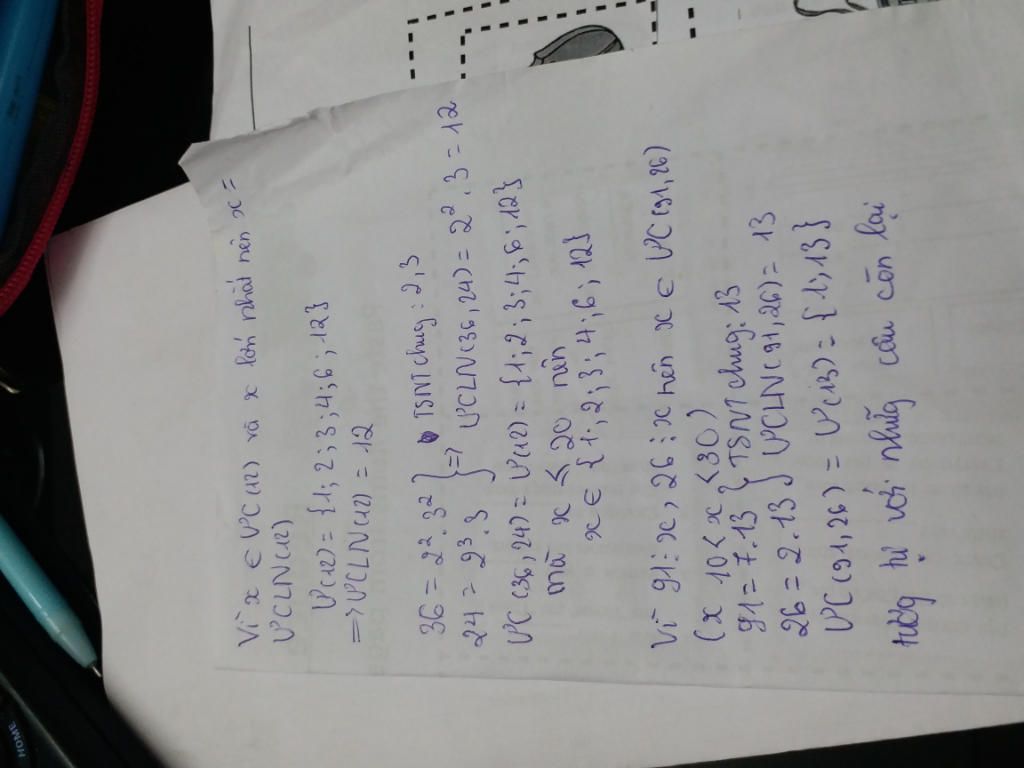 Vì x ∈ ƯC(12) và x lớn nhất nên x =
ƯCLN(12)
Ư(12) = {1; 2; 3; 4; 6; 12}
=> ƯCLN(12) = 12
36 = 2². 3² } => TSNT chung: 2,3
24 = 2³. 3 } ƯCLN(36, 24) = 2². 3 = 12
ƯC(36, 24) = Ư(12) = {1; 2; 3; 4; 6; 12}
mà x ≤ 20 nên
x ∈ {1; 2; 3; 4; 6; 12}
Vì 91 ⋮ x, 26 ⋮ x nên x ∈ ƯC(91, 26)
(x 10 < x < 30)
91 = 7. 13 } TSNT chung: 13
26 = 2. 13 } ƯCLN(91, 26) = 13
ƯC(91, 26) = Ư(13) = {1; 13}
tương tự với những câu còn lại
HOME